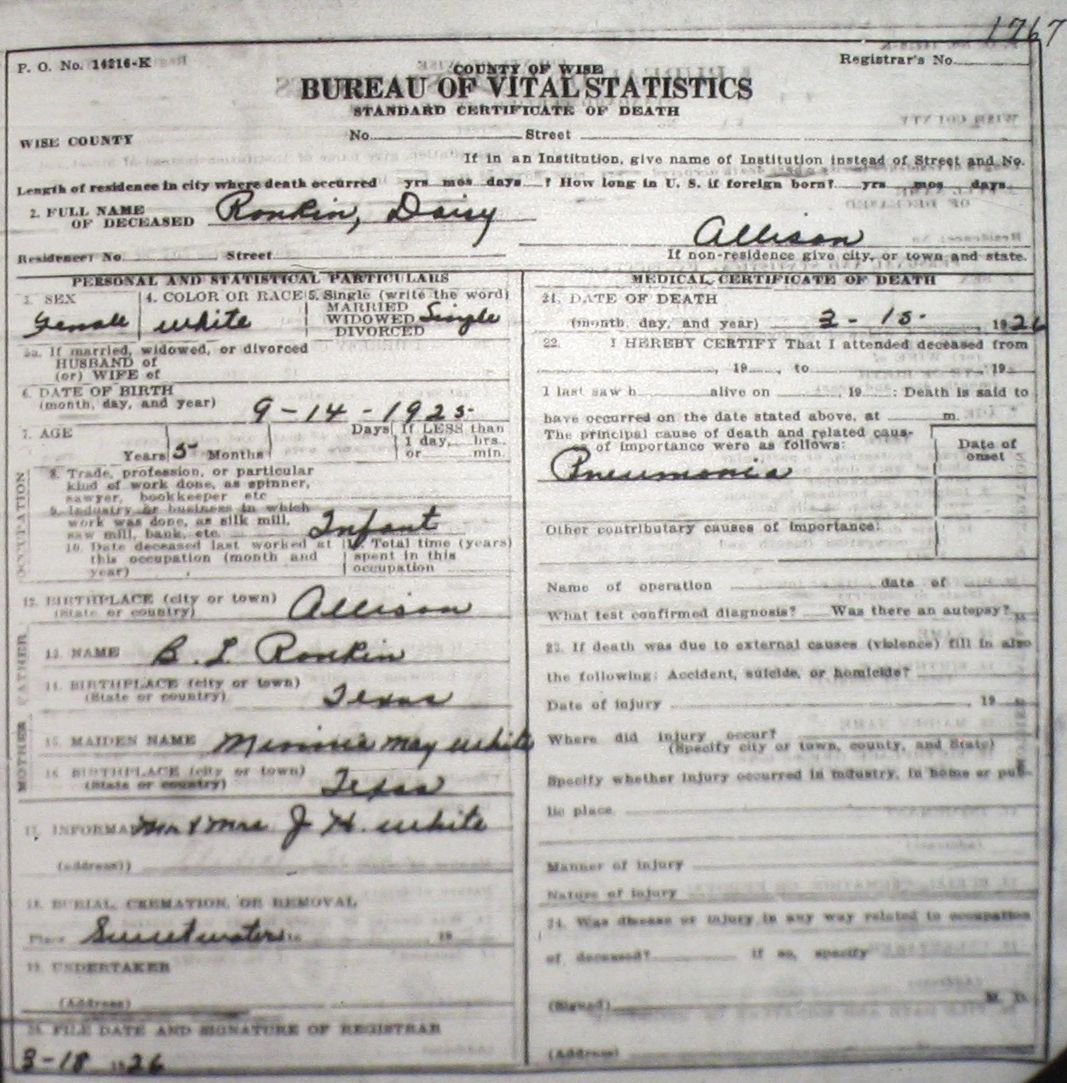 1767
P. O. No. 14216-K
Registrar's No.
COUNTY OF WISE
BUREAU OF VITAL STATISTICS
STANDARD CERTIFICATE OF DEATH
WISE COUNTY
No. Street
If in an Institution, give name of Institution instead of Street and No.
Length of residence in city where death occurred yrs mos days ? How long in U. S. if foreign born? yrs mos days.
2. FULL NAME OF DECEASED Ronkin, Daisy
Allison
Residence: No. Street
If non-residence give city, or town and state.
PERSONAL AND STATISTICAL PARTICULARS
3. SEX Female
4. COLOR OR RACE white
5. Single (write the word) MARRIED WIDOWED DIVORCED Single
5a. If married, widowed, or divorced
HUSBAND of
(or) WIFE of
6. DATE OF BIRTH
(month, day, and year) 9-14-1925
7. AGE Years 5 Months Days If LESS than 1 day, hrs. or min.
OCCUPATION
8. Trade, profession, or particular
kind of work done, as spinner,
sawyer, bookkeeper etc
9. Industry or business in which
work was done, as silk mill,
saw mill, bank, etc. Infant
10. Date deceased last worked at
this occupation (month and
year)
11. Total time (years)
spent in this
occupation
12. BIRTHPLACE (city or town)
(State or country) Allison
FATHER
13. NAME B. L. Ronkin
14. BIRTHPLACE (city or town)
(State or country) Texas
MOTHER
15. MAIDEN NAME Minnie May White
16. BIRTHPLACE (city or town)
(State or country) Texas
17. INFORMA Mr & Mrs J H. White
(address))
18. BURIAL, CREMATION, OR REMOVAL
Place Sweetwater 19
19. UNDERTAKER
(Address)
20. FILE DATE AND SIGNATURE OF REGISTRAR
3-18 1926
MEDICAL CERTIFICATE OF DEATH
21. DATE OF DEATH
(month, day, and year) 2-15- 1926
22. I HEREBY CERTIFY That I attended deceased from
, 19 , to , 19
I last saw h alive on , 19 : Death is said to
have occurred on the date stated above, at m.
The principal cause of death and related caus-
es of importance were as follows:
Date of onset
Pneumonia
Other contributary causes of importance:
Name of operation date of
What test confirmed diagnosis? Was there an autopsy?
23. If death was due to external causes (violence) fill in also
the following: Accident, suicide, or homicide?
Date of injury , 19
Where did injury occur?
(Specify city or town, county, and State)
Specify whether injury occurred in industry, in home or pub-
lic place
Manner of injury
Nature of injury
24. Was disease or injury in any way related to occupation
of deceased? if so, specify
(Signed) M. D.
(Address)